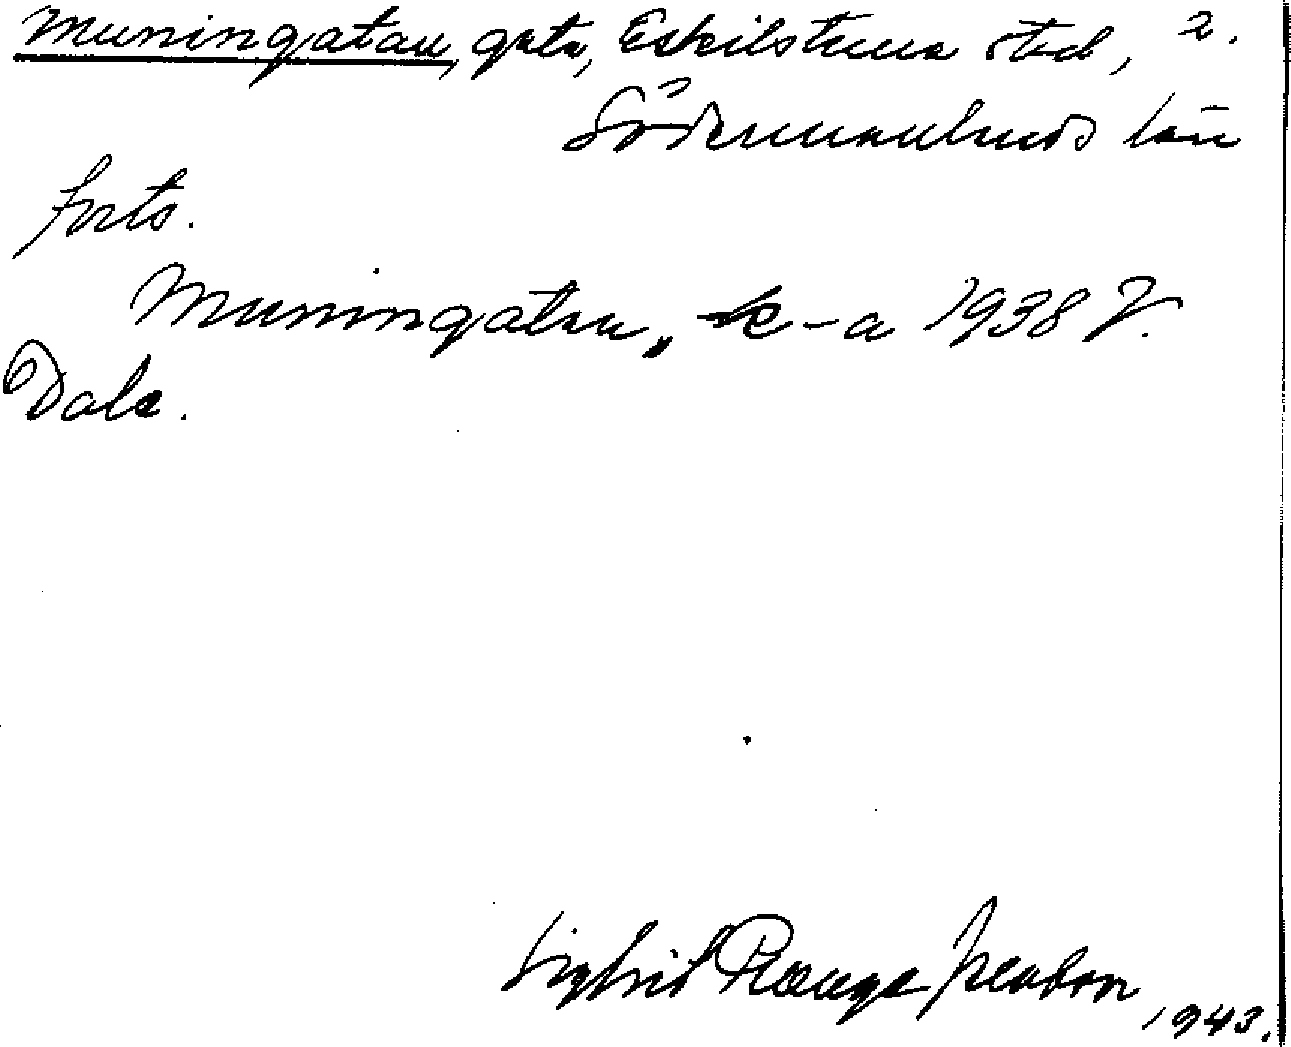 Muningatan, gata, Eskilstuna stad, 2.
Södermanlands län
forts.
Muningatan, k-a 1938 V.
Dala.
Sigfrid Ronge Jeadon, 1943.